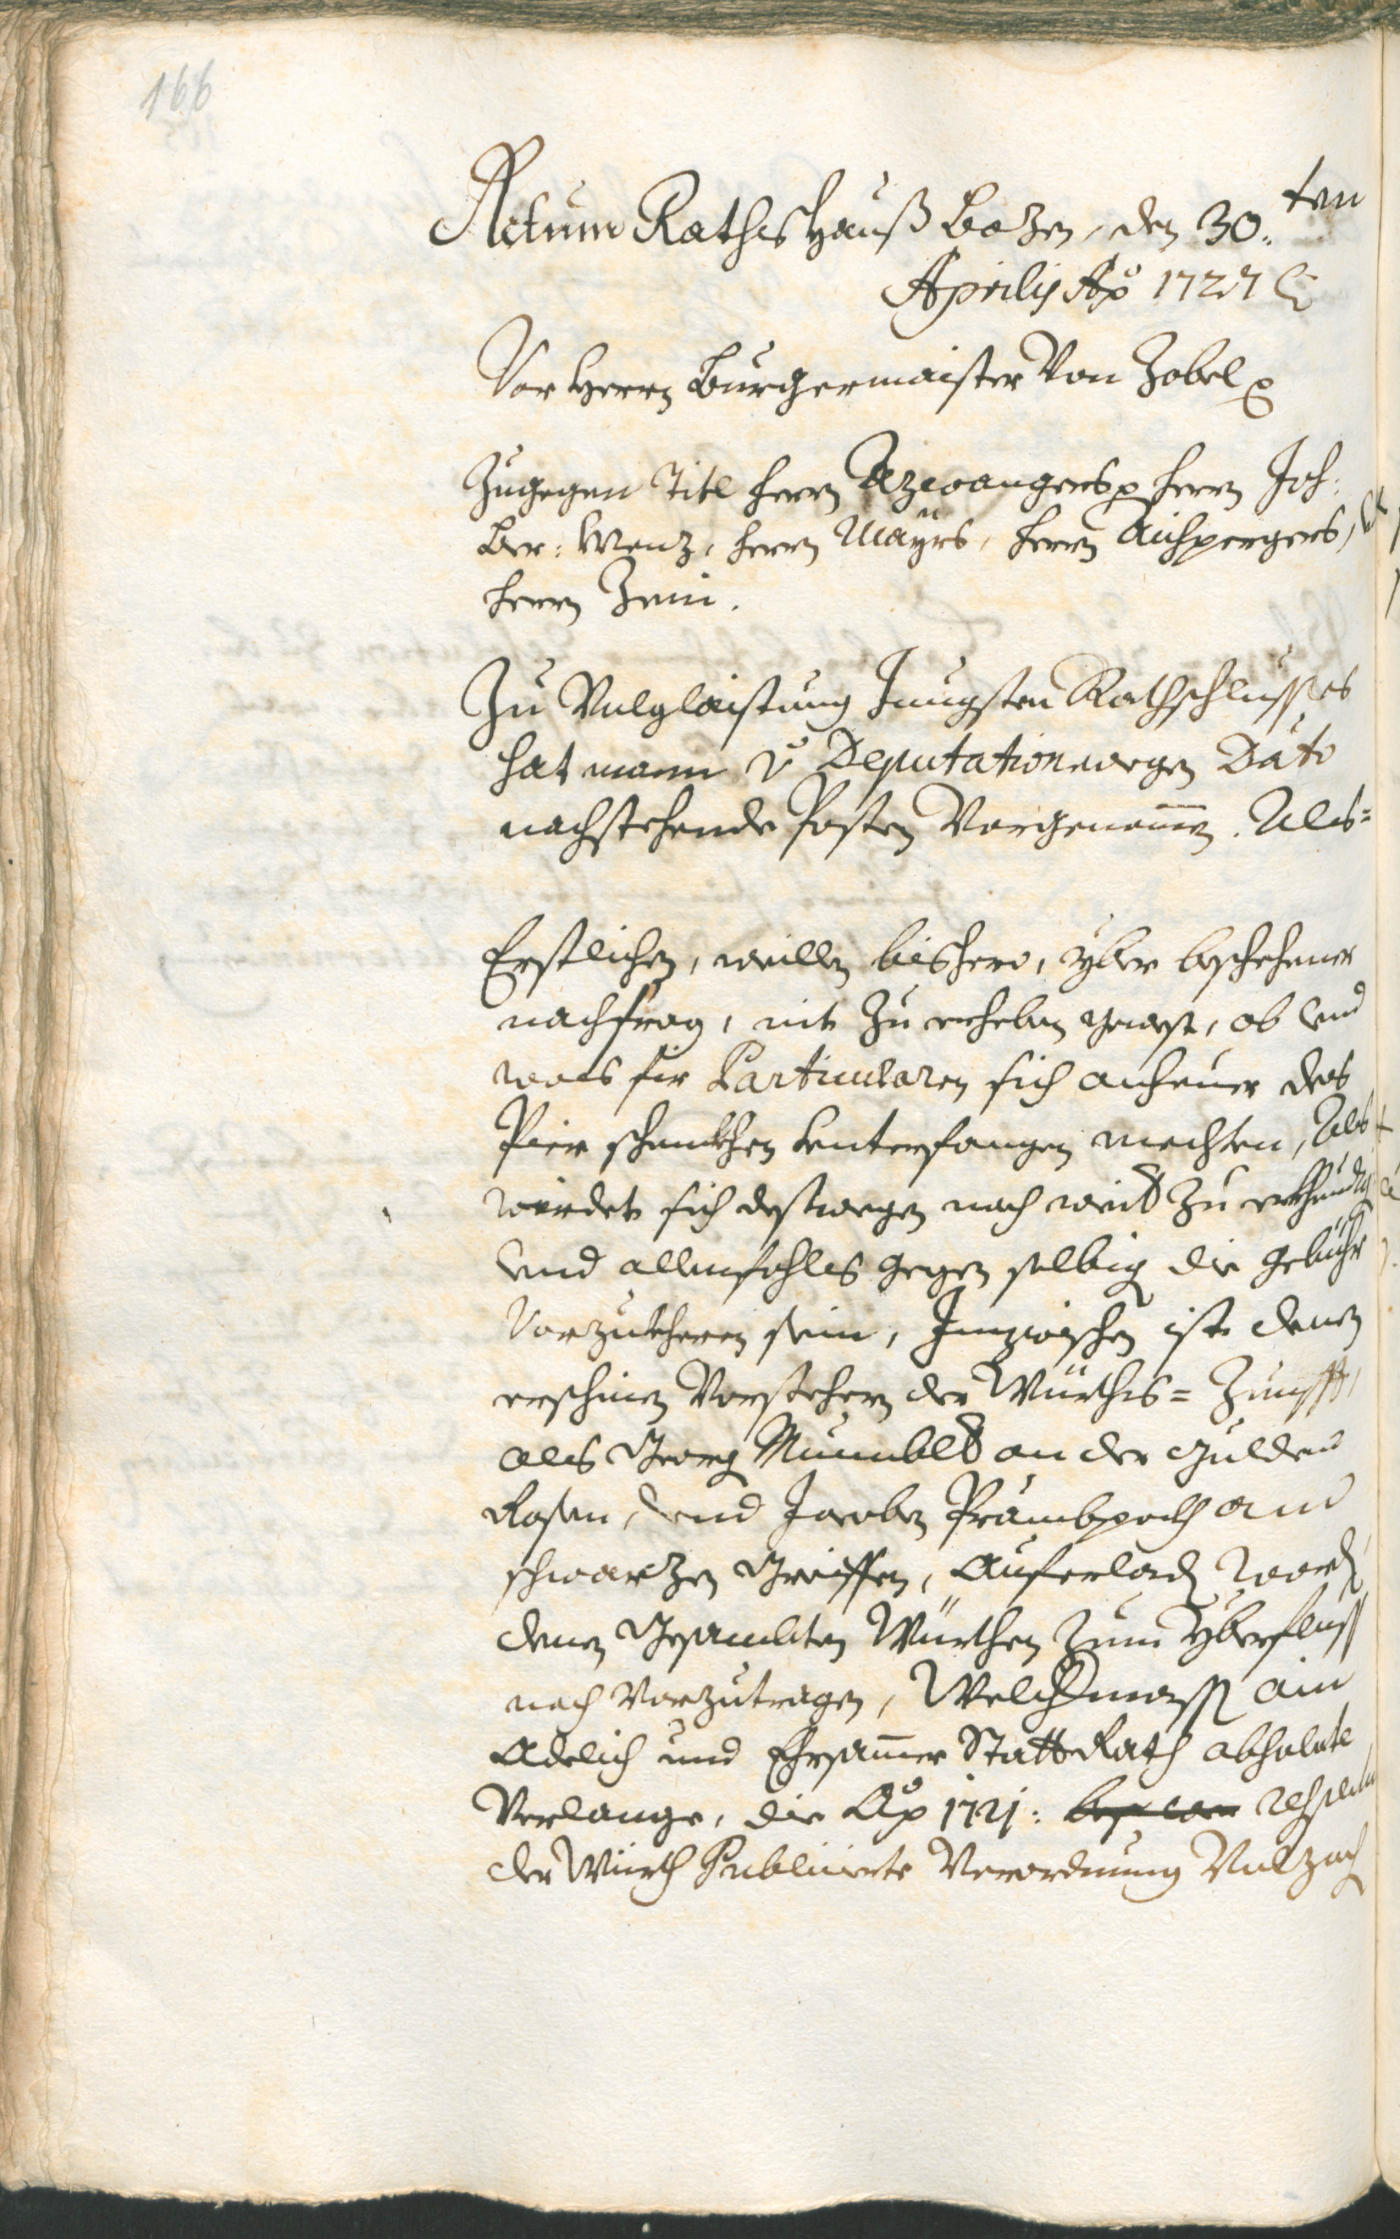 166
Actum Rathshauß Bozen, den 30.ten
Aprilis Ao 1727
Vor Herrn Burgermaister Von Zobel
Zugegen Titl Herrn Azwangers Herrn Joh:
Ber: Wenz, Herrn Mayrs, Herrn Aichpergers,
Herrn Zeni.
Zu Volglaistung Jungsten Rathschlusses
hat mann Deputationwegen Dato
nachstehende Posten Vorgenomen. Als=
Erstlichen, weillen bishero, yber beschehene
nachfrag, nit zu erheben gewest, ob und
was fir Particularen sich anheuer des
Pier schenkhen unterfangen mechten, Als
wirdet sich destwegen noch weit zu erkhundigen
und allenfahls gegen selbig die gebühr
Vorzukheren sein, Inzwischen ist denen
erschinen Vorstehern der Würths= Zunfft,
als Georg Mumblt an der gulden
Rosen, und Jacoben Prämbpach am
schwarzen Greiffen, Auferladen worden
denen Gesambten Würthen zum Yberfluss
noch Vorzutragen, Welchermassen ain
Adelich und Ehrsamer StattRath absolute
Verlange, die Ao 1721: respectu
der Würth Publicierte Verordnung Volzoch